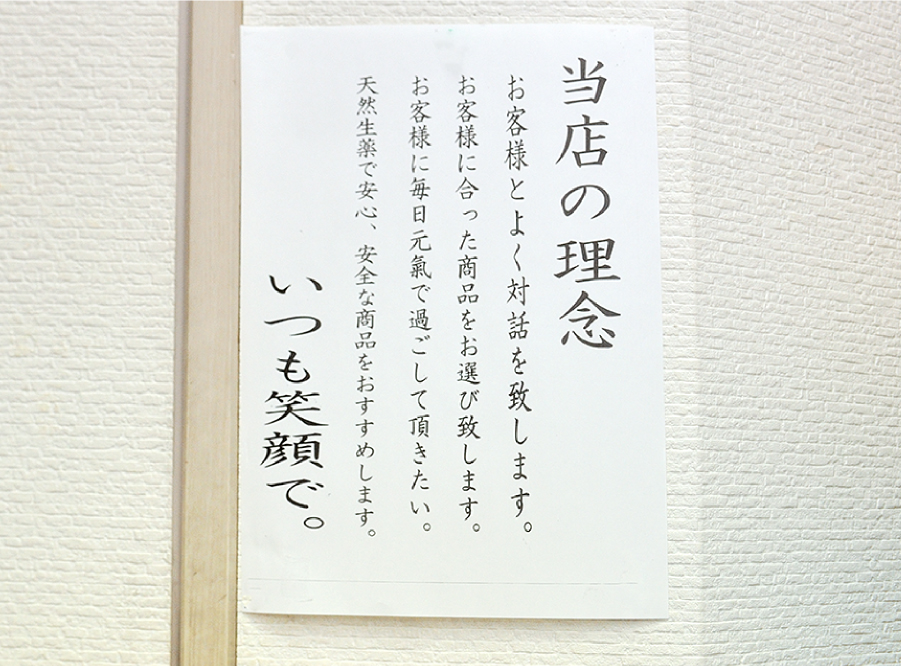 当店の理念
お客様とよく対話を致します。
お客様に合った商品をお選び致します。
お客様に毎日元氣で過ごして頂きたい。
天然生薬で安心、安全な商品をおすすめします。
いつも笑顔で。